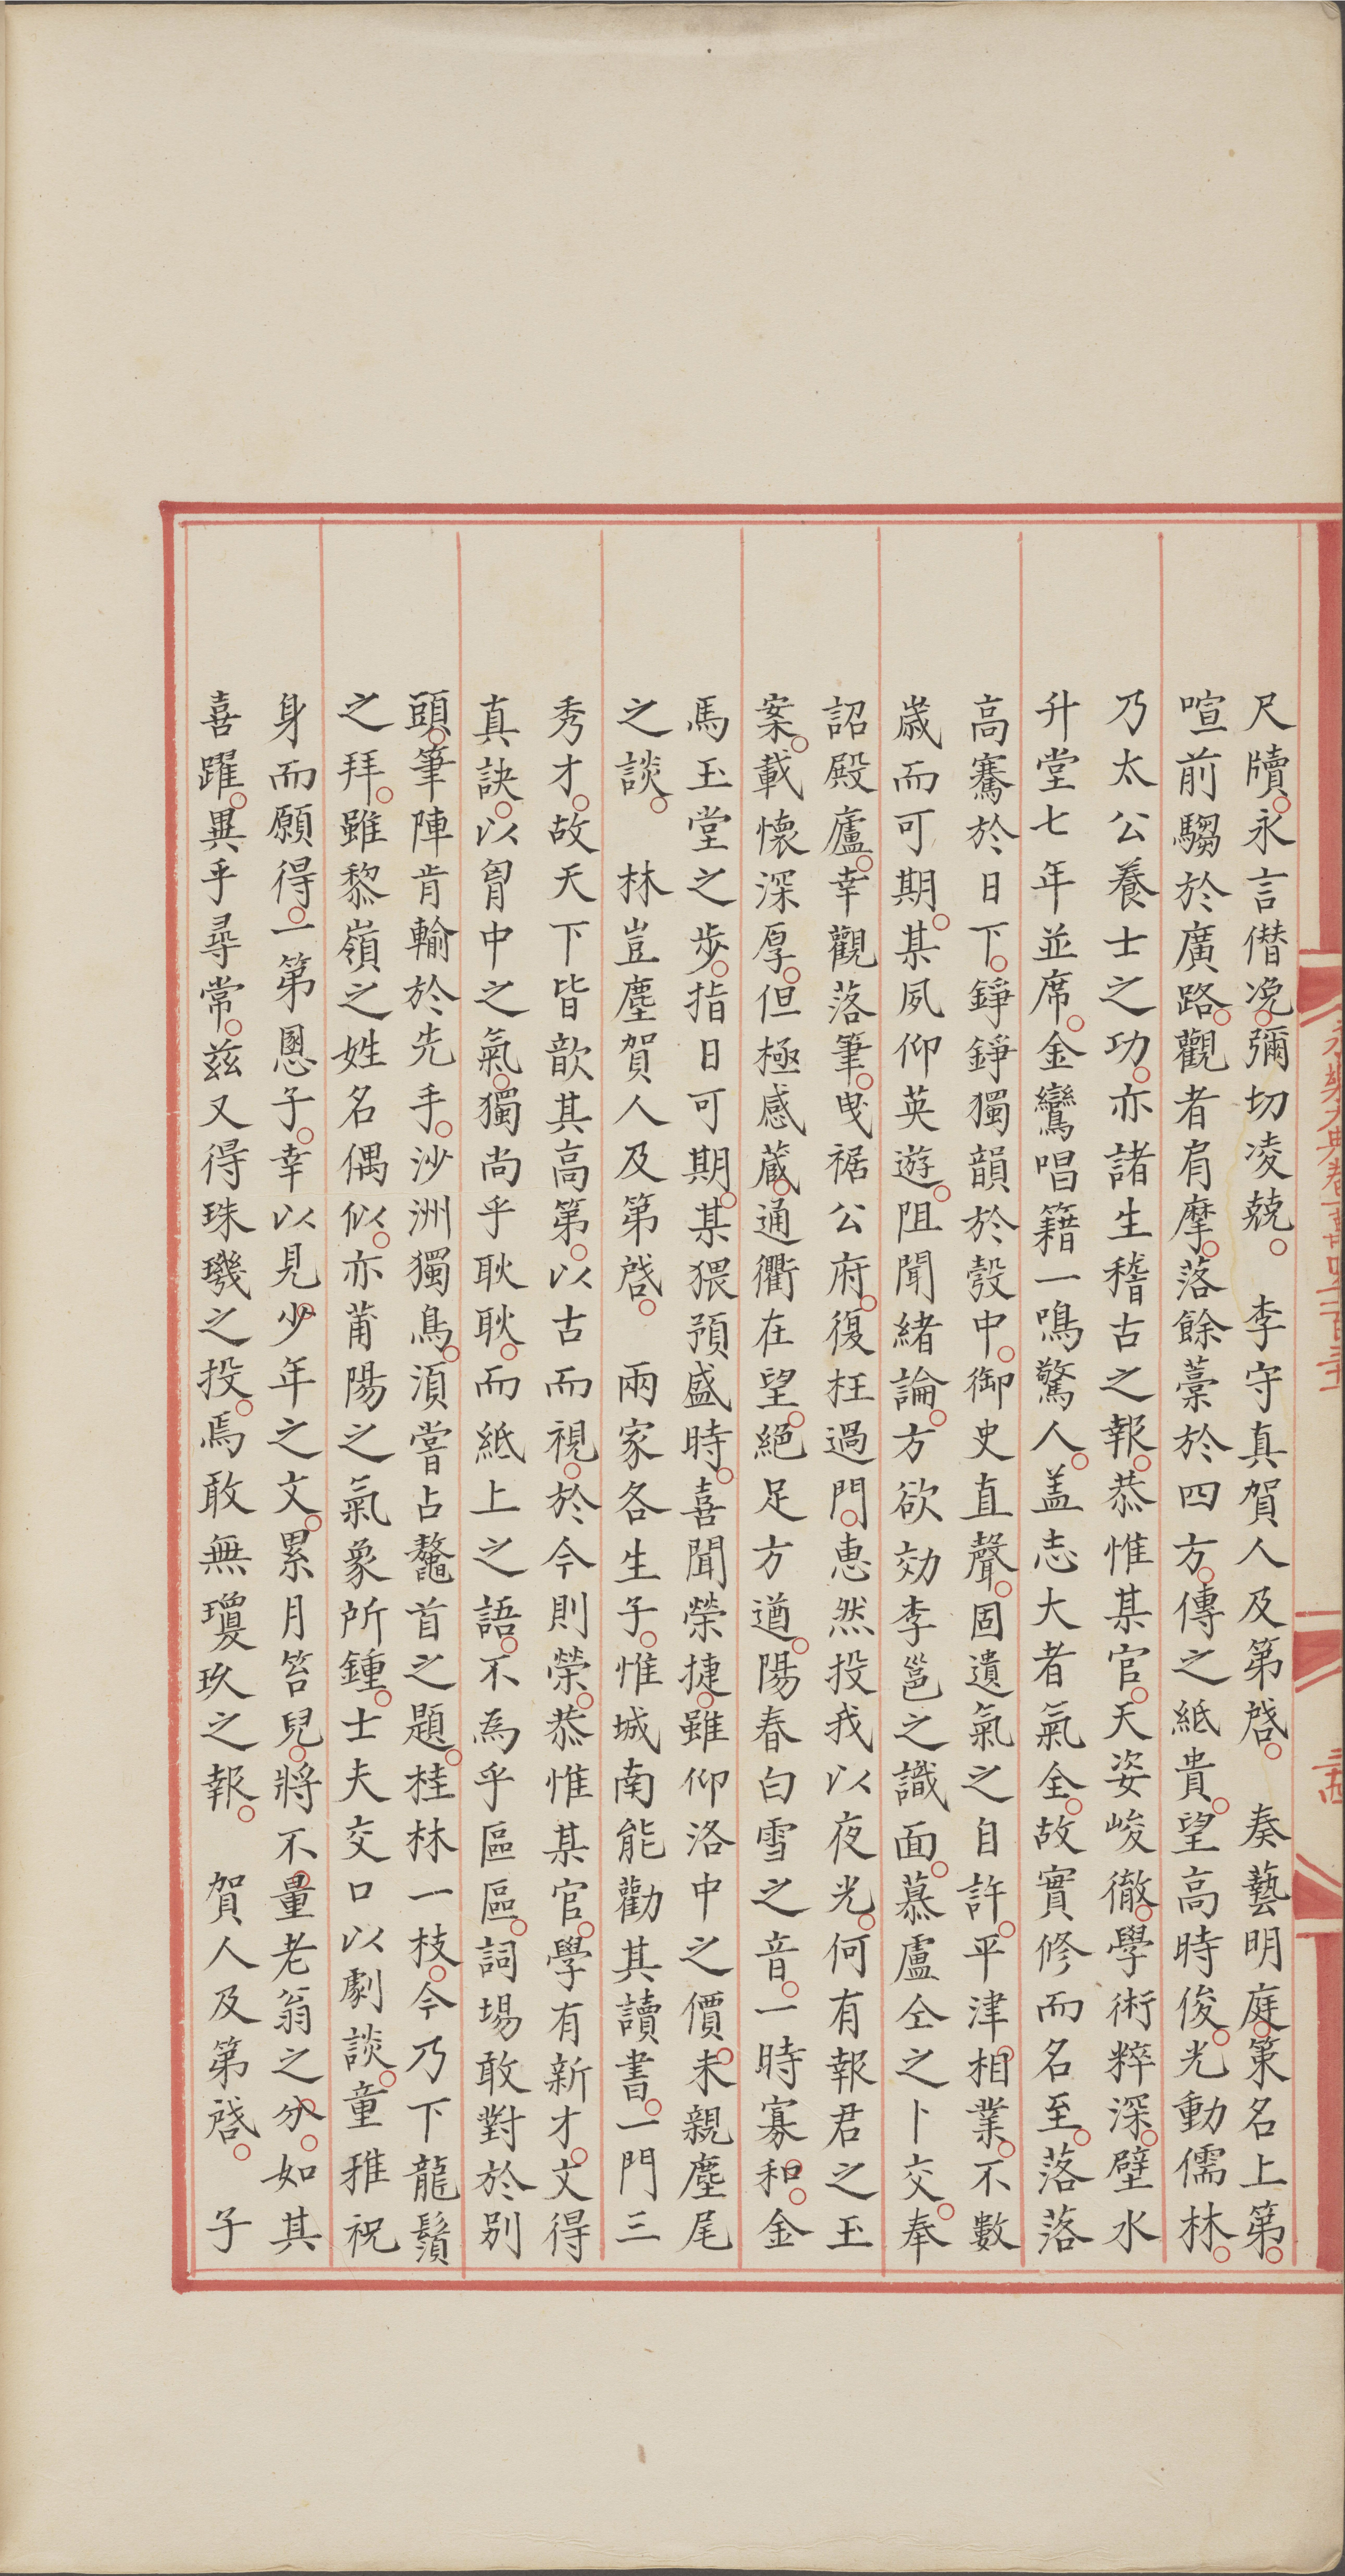 尺牘。永言僣冼。彌切凌兢。　李守真賀人及第啓。　奏藝明庭。策名上第。
喧前騶於廣路。觀者肩摩。落餘藁於四方。傳之紙貴。望高時俊。光動儒林。
乃太公養士之功。亦諸生稽古之報。恭惟某官。天姿峻徹。學術粹深。壁水
升堂七年並席。金鸞唱籍一鳴驚人。盖志大者氣全。故實修而名至。落落
高騫於日下。錚錚獨韻於彀中。御史直聲。固遺氣之自許。平津相業。不數
歲而可期。某夙仰英遊。阻聞緒論。方欲効李邕之識面。慕盧仝之卜交。奉
詔殿廬。幸觀落筆。曵裾公府。復枉過門。恵然投我以夜光。何有報君之玉
案。載懷深厚。但極感蔵。通衢在望。絕足方遒。陽春白雪之音。一時寡和。金
馬玉堂之步。指日可期。某猥預盛時。喜聞榮捷。雖仰洛中之價。未親塵尾
之談。　林豈塵賀人及第啓。　兩家各生子。惟城南能勸其讀書。一門三
秀才。故天下皆歆其高第。以古而視。於今則榮。恭惟某官。學有新才。文得
真訣。以胷中之氣。獨尚乎耿耿。而紙上之語。不為乎區區。詞場敢對於别
頭。筆陣肯輸於先手。沙洲獨鳥。湏嘗占鼇首之題。桂林一枝。今乃下龍鬚
之拜。雖黎嶺之姓名偶似。亦莆陽之氣象所鍾。士夫交口以劇談。童稚祝
身而願得。一第恩子。幸以見少年之文。累月笞兒。將不量老翁之分。如其
喜躍。異乎尋常。兹又得珠璣之投。焉敢無瓊玖之報。　賀人及第啓。　子